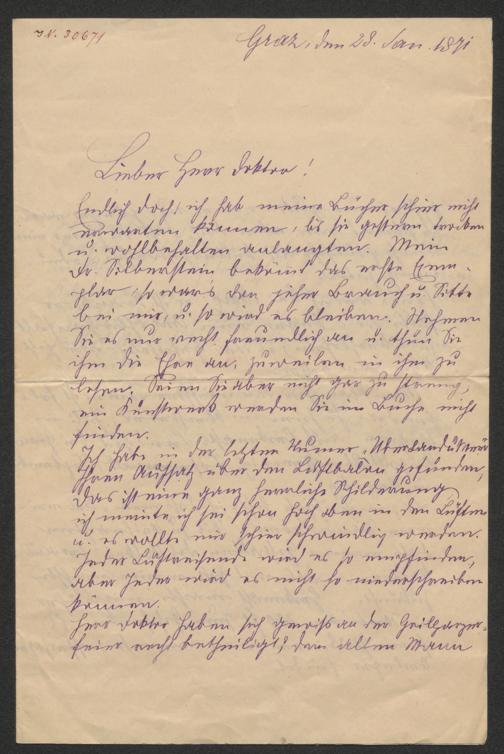 I.N. 30671
Graz, den 28. Jan. 1871
Lieber Herr Doktor!
Endlich doch! ich hab meine Bücher schier nicht
erwarten können, bis sie gestern trocken
u. wohlbehalten anlangten. Mein
Dr. Silberstein bekömt das erste Exem-
plar; so war's von jeher Brauch u. Sitte
bei mir, u. so wird es bleiben. Nehmen
Sie es nur recht freundlich an u. thun Sie
ihm die Ehre an, zuweilen in ihm zu
lesen. Seien Sie aber nicht gar zu streng,
ein Kunstwerk werden Sie im Buche nicht
finden.
Ich habe in der letzten Numer "Über Land u. Meer"
Ihren Aufsatz über den Luftballon gefunden,
das ist eine ganz herrliche Schilderung,
ich meinte, ich sei schon hoch oben in den Lüften
u. es wollte mir schier schwindlig werden.
Jeder Luftreisende wird es so empfinden,
aber Jeder wird es nicht so niederschreiben
können.
Herr Doktor haben sich gewiß an der Grillparzer-
feier recht betheiligt; dem alten Mann